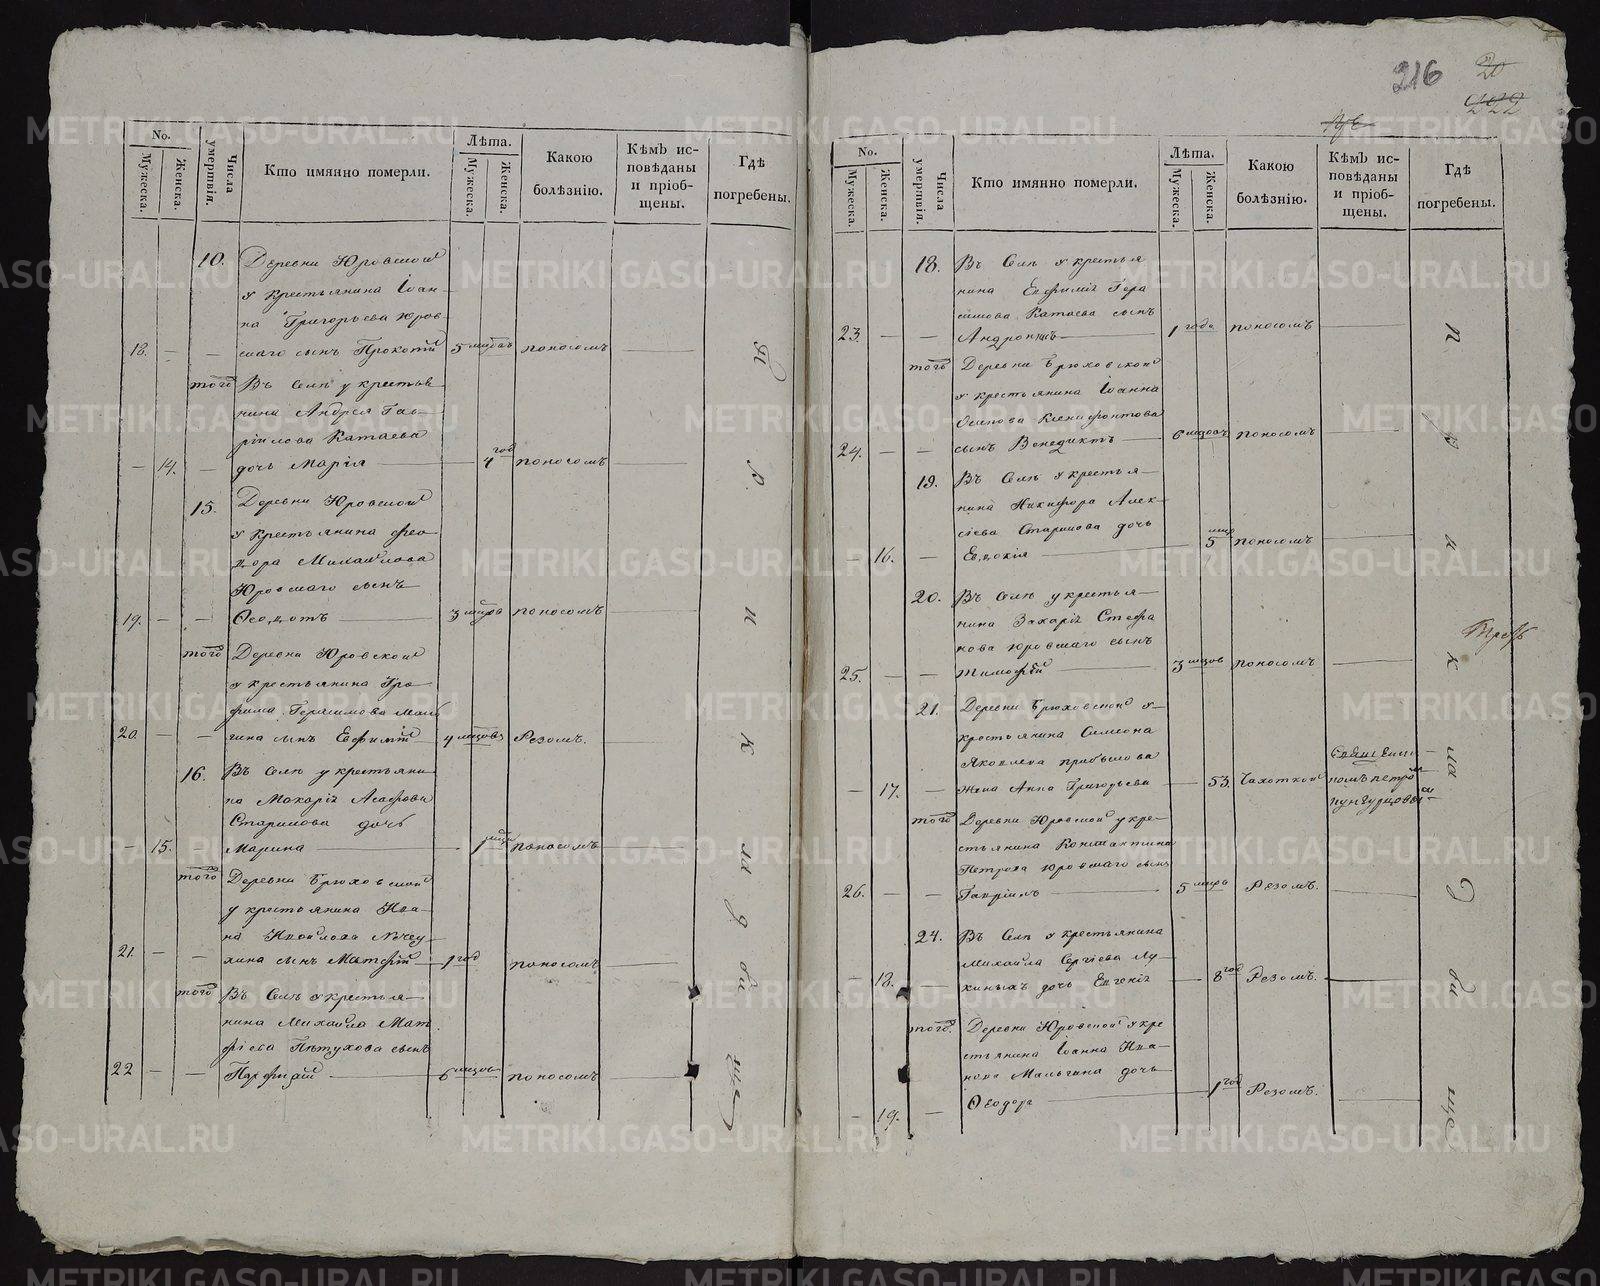 No.
Мужеска.
Женска.
Числа умертвія.
Кто имянно померли.
Лѣта.
Мужеска.
Женска.
Какою болѣзнію.
Кѣмъ исповѣданы и пріобщены.
Гдѣ погребены.
10. Деревни Юровской
у крестьянина Іоан-
на Григорьева Юров-
18. — — скаго сынъ Прокопій 5 мцовъ поносомъ
того Въ Селѣ у крестья
нина Андрея Гав-
ріилова Катаева
— 14. — дочь Марія 4 год поносомъ
15. Деревни Юровской
у крестьянина Фео
дора Михайлова
Юровскаго сынъ
19. — — Ѳеодотъ 3 мцов поносомъ
того Деревни Юровской
у крестьянина Тро
фима Герасимова Маль
20. — — гина сынъ Евфимій 4 мцовъ Резомъ.
16. Въ Селѣ у крестьяни
на Макарія
Старикова дочь
— 15. Марина 1 поносомъ
того Деревни Брюховской
у крестьянина Ива
на
21. — — хина сынъ Матфій 1 год поносомъ
того Въ Селѣ у крестья
нина Михайла Мат
фіева Пѣтухова сынъ
22 — — 6 мцовъ поносомъ
На кладбище
216
20
222
No.
Мужеска.
Женска.
Числа умертвія.
Кто имянно померли.
Лѣта.
Мужеска.
Женска.
Какою болѣзнію.
Кѣмъ исповѣданы и пріобщены.
Гдѣ погребены.
18. Въ Селѣ у крестья
нина Евфимія Гера
симова Катаева сынъ
23. — — Андроникъ 1 года поносомъ
того Деревни Брюховской
у крестьянина Іоанна
Осипова Ксенофонтова
24. — — сынъ Венедиктъ 6 мцовъ поносомъ
19. Въ Селѣ у крестья
нина Никифора Алек-
сіева Старикова дочь
— 16. — Евдокія 5 мцов поносомъ
20. Въ Селѣ у крестья
нина Захарія Стефа
нова Юровскаго сынъ
25. — — Тимофѣй 3 мцов поносомъ
21. Деревни Брюховской у
крестьянина Симеона
Яковлева
— 17. — жена Анна Григорьева 53. Чахоткой Священни
комъ Петромъ
того Деревни Юровской у кре-
стьянина Константина
Петрова Юровскаго сынъ
26. — — Гавріилъ 5 мцовъ Резомъ.
24. Въ Селѣ у крестьянина
Михайла Сергіева Лу-
— 18. — киныхъ дочь Евгенія 8 год Резомъ.
того. Деревни Юровской у кре
стьянина Іоанна Ива-
нова Мальгина дочь
— 19. — Ѳеодора 1 год Резомъ.
На кладбище